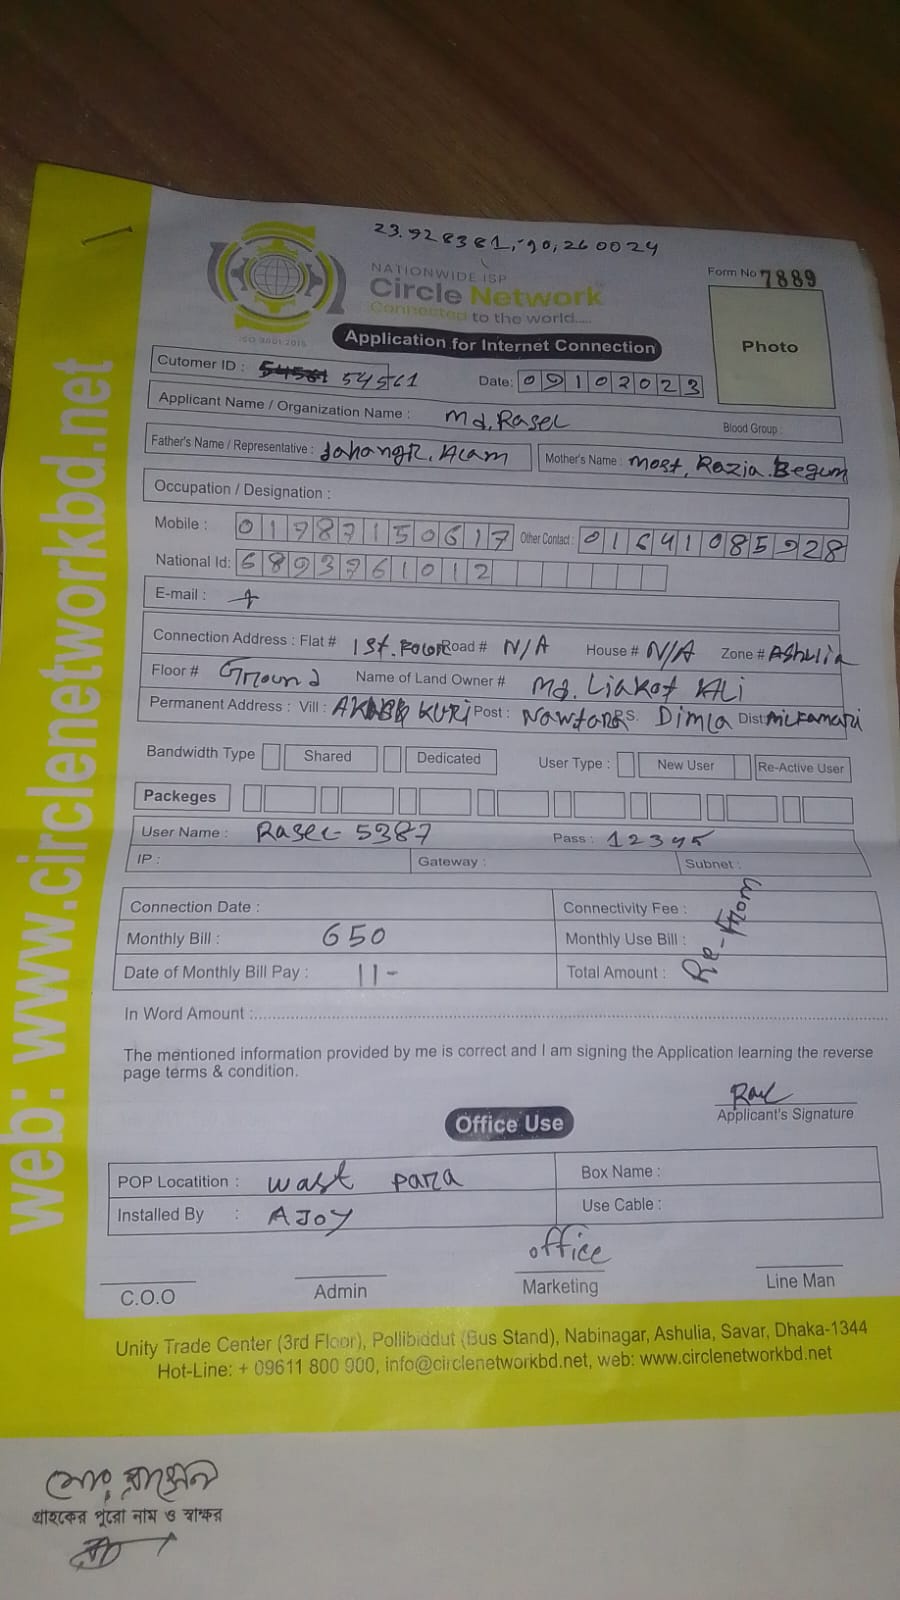 23.928381, 90,260024
NATIONWIDE ISP
Circle Network
Connected to the world.....
ISO 9001:2015
Form No 7889
Photo
Application for Internet Connection
Cutomer ID : 54561 Date: 09102023
Applicant Name / Organization Name : Md, Rasel Blood Group :
Father's Name / Representative : Jahangir. Alam Mother's Name : Most, Razia. Begum
Occupation / Designation :
Mobile : 01787150617 Other Contact : 01641085928
National Id: 6893761012
E-mail :
Connection Address : Flat # 1st. Road # N/A House # N/A Zone # Ashulia
Floor # Ground Name of Land Owner # Md. Liakot Ali
Permanent Address : Vill : KURi Post : P.S. Dimla Dist:
Bandwidth Type Shared Dedicated User Type : New User Re-Active User
Packeges
User Name : Rasel-5387 Pass : 12345
IP : Gateway : Subnet :
Connection Date : Connectivity Fee :
Monthly Bill : 650 Monthly Use Bill :
Date of Monthly Bill Pay : 11- Total Amount :
Re-From
In Word Amount :
The mentioned information provided by me is correct and I am signing the Application learning the reverse
page terms & condition.
Applicant's Signature
Office Use
POP Locatition : wast para Box Name :
Installed By : AJOY Use Cable :
office
C.O.O Admin Marketing Line Man
Unity Trade Center (3rd Floor), Pollibiddut (Bus Stand), Nabinagar, Ashulia, Savar, Dhaka-1344
Hot-Line: + 09611 800 900, info@circlenetworkbd.net, web: www.circlenetworkbd.net
web: www.circlenetworkbd.net
মোঃ রাসেল
গ্রাহকের পুরো নাম ও স্বাক্ষর